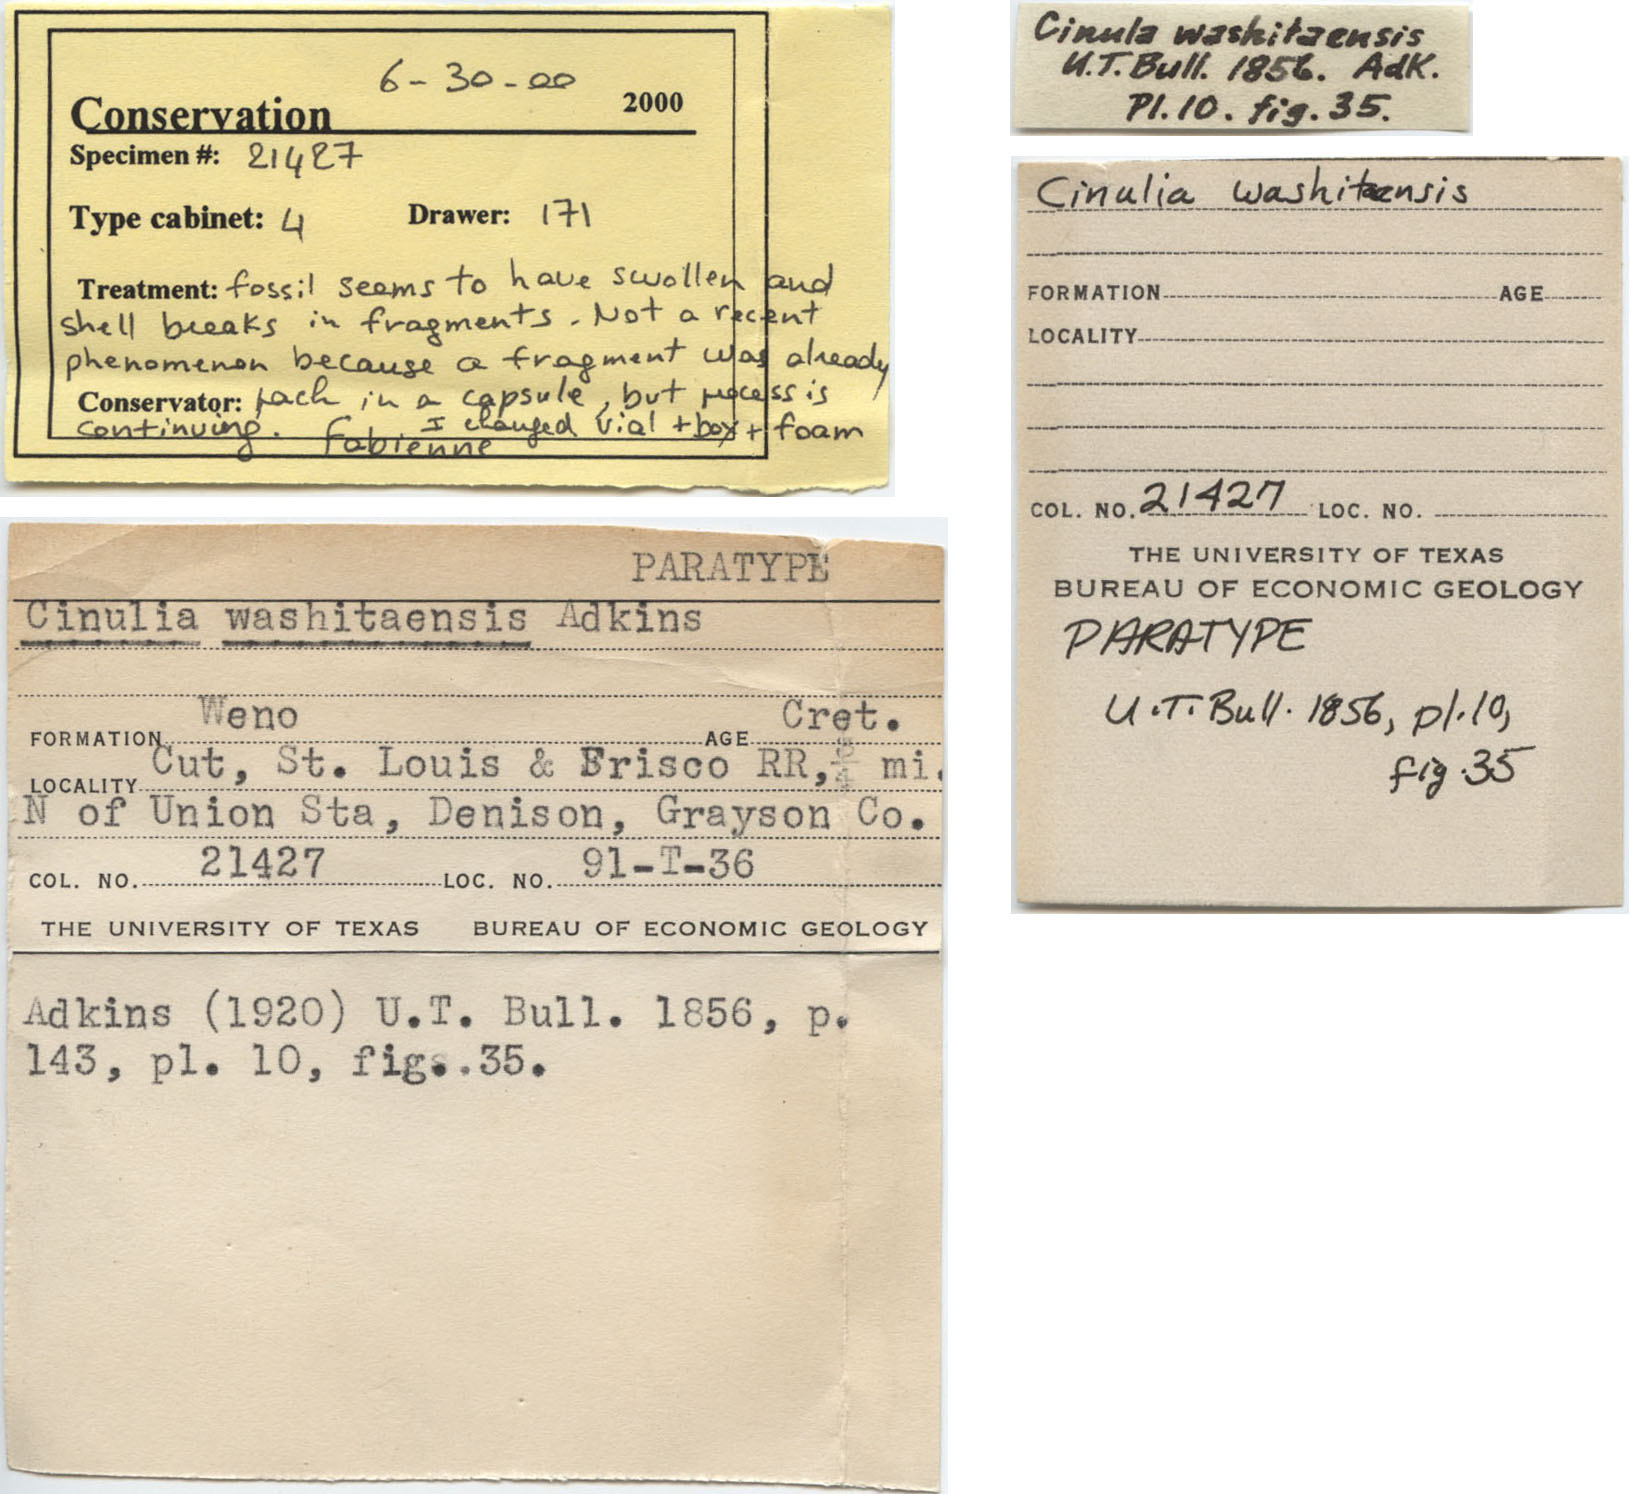 6-30-00
Conservation 2000
Specimen #: 21427
Type cabinet: 4 Drawer: 171
Treatment: fossil seems to have swollen and
shell breaks in fragments. Not a recent
phenomenon because a fragment was already
Conservator: pack in a capsule, but process is
continuing. I changed vial + box + foam
Fabienne
Cinula washitaensis
U.T. Bull. 1856. Adk.
Pl. 10. fig. 35.
Cinulia washitaensis
FORMATION AGE
LOCALITY
COL. NO. 21427 LOC. NO.
THE UNIVERSITY OF TEXAS
BUREAU OF ECONOMIC GEOLOGY
PARATYPE
U.T. Bull. 1856, pl. 10,
fig. 35
PARATYPE
Cinulia washitaensis Adkins
FORMATION Weno AGE Cret.
LOCALITY Cut, St. Louis & Frisco RR, 3/4 mi.
N of Union Sta, Denison, Grayson Co.
COL. NO. 21427 LOC. NO. 91-T-36
THE UNIVERSITY OF TEXAS BUREAU OF ECONOMIC GEOLOGY
Adkins (1920) U.T. Bull. 1856, p.
143, pl. 10, fig. 35.